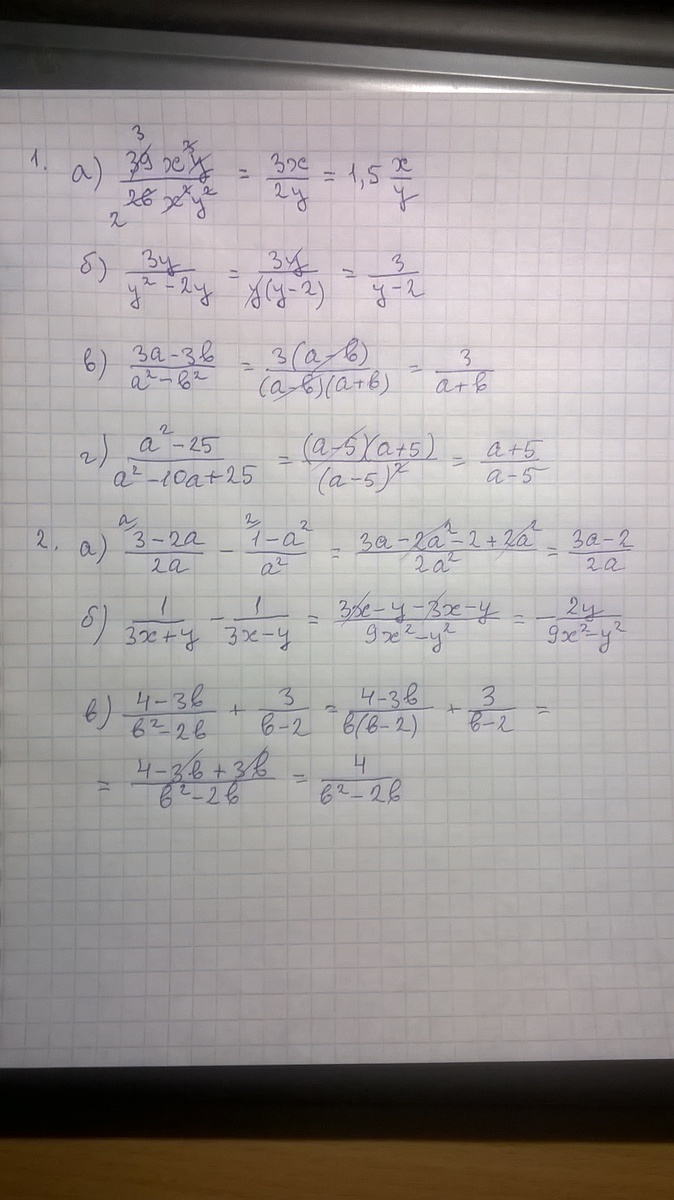 1. а) 39x³y / 26x²y² = 3x / 2y = 1,5 x/y
3
2
б) 3y / y² - 2y = 3y / y(y-2) = 3 / y-2
в) 3a-3b / a²-b² = 3(a-b) / (a-b)(a+b) = 3 / a+b
г) a²-25 / a²-10a+25 = (a-5)(a+5) / (a-5)² = a+5 / a-5
2. а) a/ 3-2a / 2a - 2/ 1-a² / a² = 3a-2a²-2+2a² / 2a² = 3a-2 / 2a
б) 1 / 3x+y - 1 / 3x-y = 3x-y-3x-y / 9x²-y² = - 2y / 9x²-y²
в) 4-3b / b²-2b + 3 / b-2 = 4-3b / b(b-2) + 3 / b-2 =
= 4-3b+3b / b²-2b = 4 / b²-2b